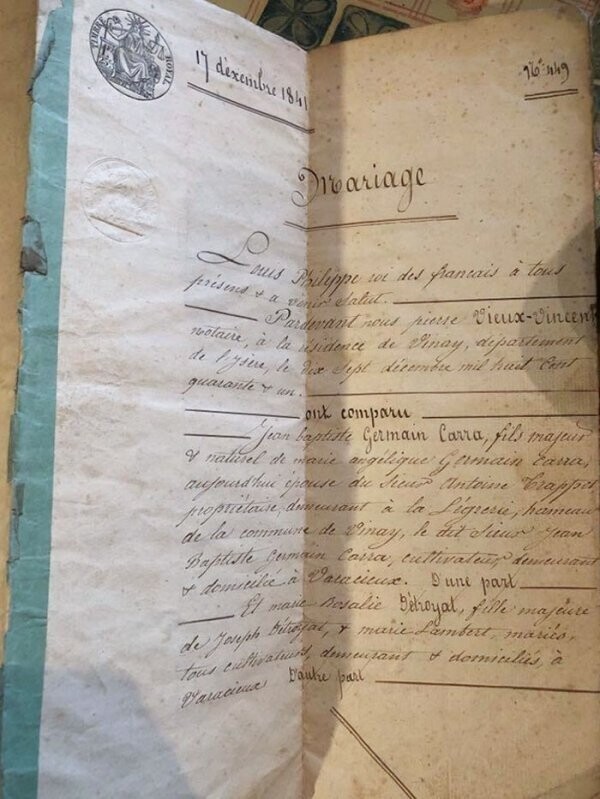 TIMBRE ROYAL
17 déxembre 1841
N.º 449
Mariage
Louis Philippe roi des francais à tous
présens & a venir Salut.
Pardevant nous pierre Vieux-Vincent
notaire, à la résidence de Vinay, département
de lysère, le dix Sept décembre mil huit Cent
quarante & un.
ont comparu
Jean baptiste Germain Carra, fils majeur
& naturel de marie angélique Germain Carra,
aujourd'hui épouse du Sieur Antoine Trappet
propriétaire, demeurant à la Légrerie, hameau
de la commune de Vinay, le dit Sieur Jean
Baptiste Germain Carra, cultivateur demeurant
& domicilié à Varacieux. D'une part
Et marie Rosalie Détroyat, fille majeure
de Joseph Détroyat, & marie Lambert, mariés,
tous cultivateurs, demeurant & domiciliés, à
Varacieux D'autre part